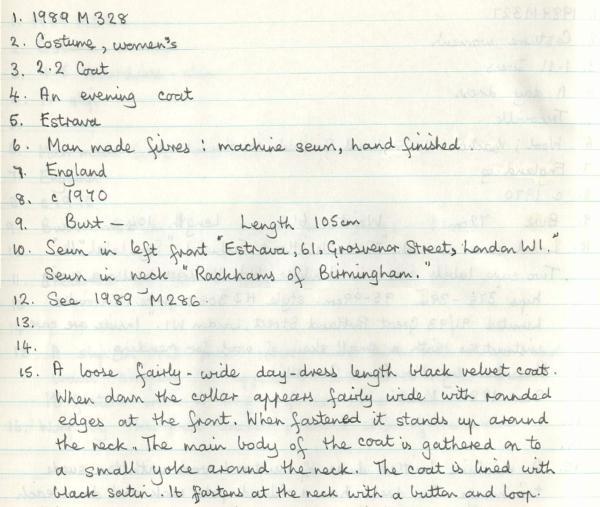 1. 1989 M 328
2. Costume, women's
3. 2.2 Coat
4. An evening coat
5. Estrava
6. Man made fibres : machine sewn, hand finished.
7. England
8. c 1970
9. Bust — Length 105cm
10. Sewn in left front "Estrava, 61, Grosvenor Street, London W1."
Sewn in neck "Rackhams of Birmingham."
12. See 1989 M286.
13.
14.
15. A loose fairly-wide day-dress length black velvet coat.
When down the collar appears fairly wide with rounded
edges at the front. When fastened it stands up around
the neck. The main body of the coat is gathered on to
a small yoke around the neck. The coat is lined with
black satin. It fastens at the neck with a button and loop.